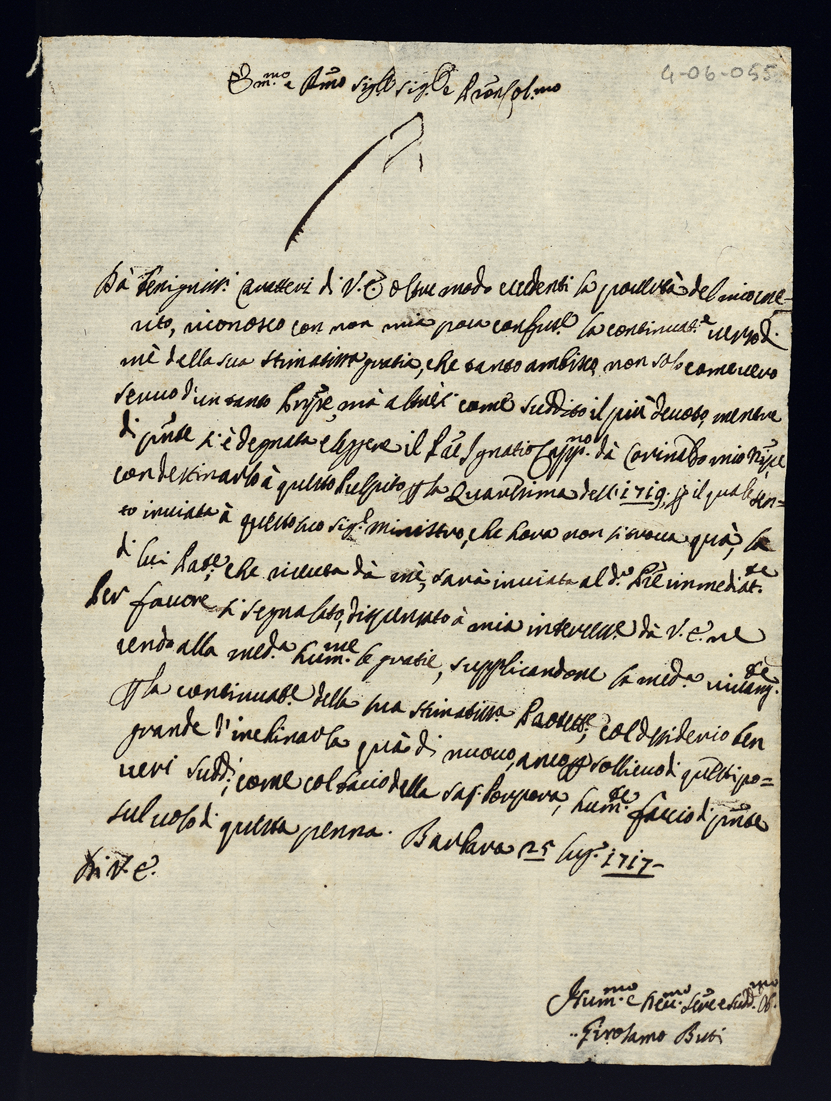 4-06-055
E.mo e Rmo Sig.r Sig.r e Pron Col.mo
Dà benigniss.i Caratteri di V. E. oltre modo eccedenti la povertà del mio me-
rito, riconosco con non mia poca confus.e la continuat.e verso di
mè della sua stimatissa gratia, che tanto ambisco non solo come vero
servo d'un tanto Prnpe, mà altresì come suddito il più devoto, mentre
di pnte s'è degnata elggere il Pre Ignatio Capp.no dà Corinaldo mio Nipe
con destinarlo à questo Pulpito p la Quaresima dell. 1719. p il quale sen-
to inviata à questo suo sig.e ministro, che hora non si trova quà, la
di lui Pate, che ricevuta dà mè, sarà inviata al d.o Prè immediat.te
Per favore sì segnalato, dispensato à mia intercesse dà V. E. ne
rendo alla med.a hum.me le gratie, supplicandone la med.a
p la continuat.e della sua stimatissa Protett.e, col desiderio ben
grande d'inchinarla quà di nuovo, anco p sollievo di questi po=
veri sudd.i, come col bacio della sag. Porpora, hum.te faccio di pnte
sul volo di questa penna. Barbara 25 lug.o 1717-
Di V. E.
Hum.mo e Dev.mo Serre e sudd.o Ob.mo
Girolamo Buti